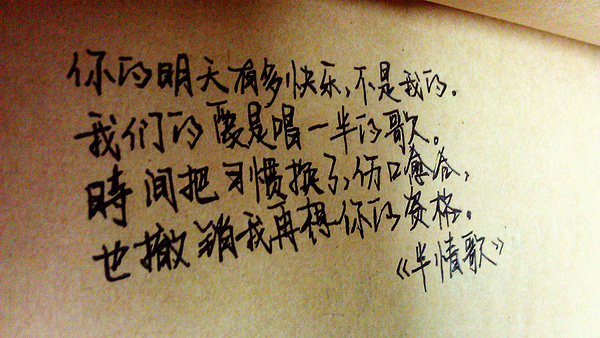 你的明天有多快乐,不是我的.
我们的爱是唱一半的歌。
時间把习惯换了,伤口愈合,
也撤销我再想你的资格。
《半情歌》